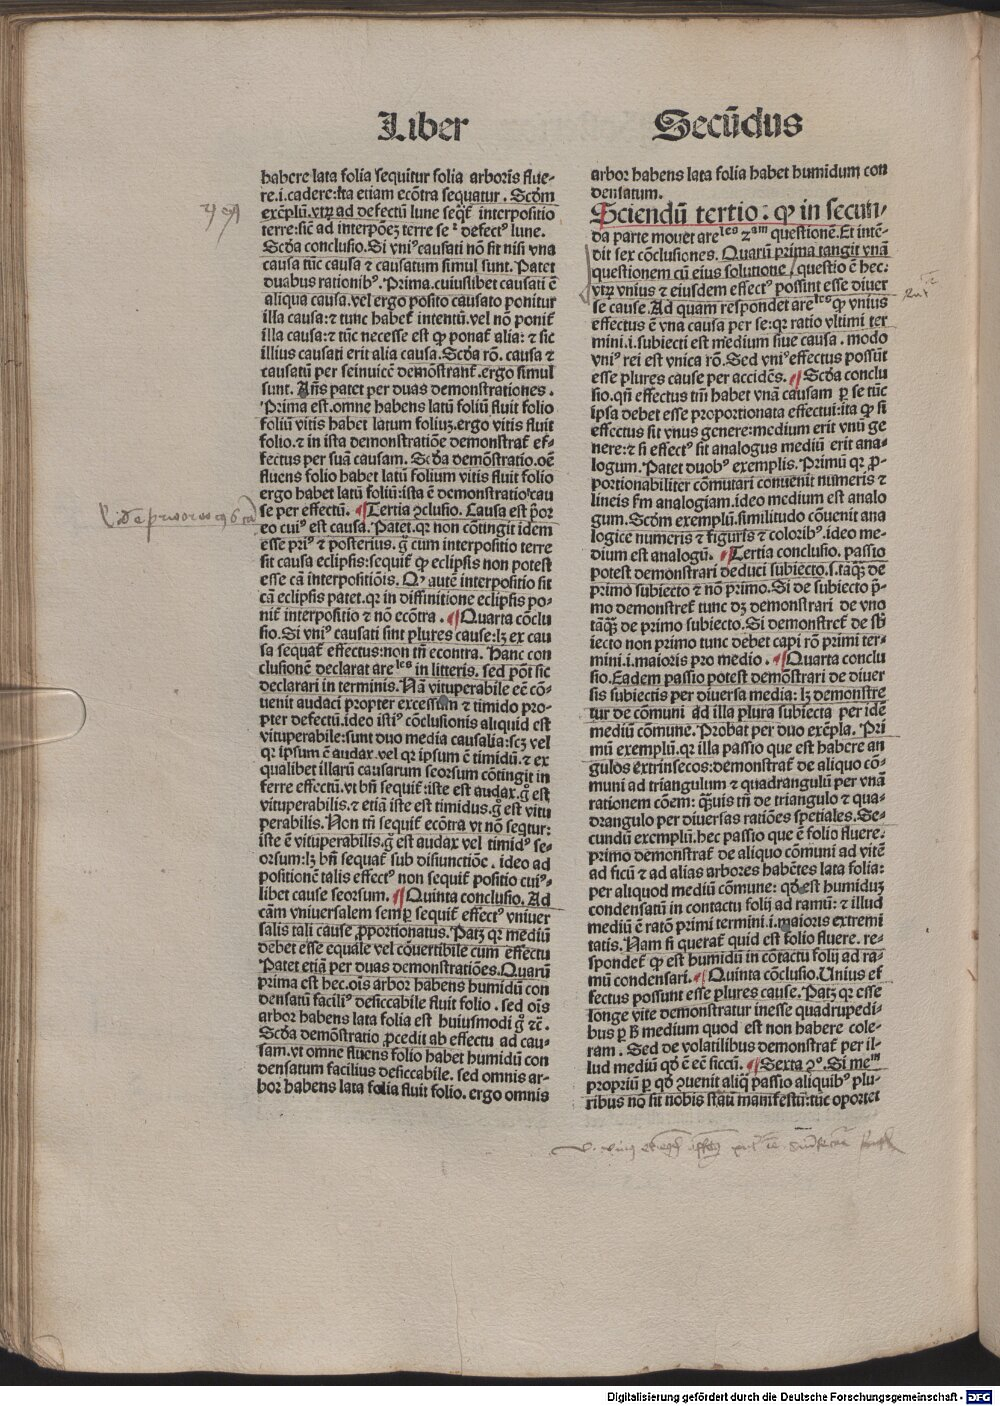 Liber
Secūdus
habere lata folia sequitur folia arboris flue-
re.i.cadere:Ita etiam ecōtra sequatur. Scd̄m
exēplū.vtꝝ ad defectū lune seqt̄ interpositio
terre:sic̄ ad interpōeꝫ terre seꝰ defectꝰ lune.
Scd̄a conclusio.Si vniꝰ causati nō sit nisi vna
causa tūc causa ⁊ causatum simul sunt. Patet
duabus rationibꝰ. Prima.cuiuslibet causati ē
aliqua causa.vel ergo posito causato ponitur
illa causa:⁊ tunc habet̄ intentū.vel nō ponit̄
illa causa:⁊ tūc necesse est ꝙ ponat̄ alia: ⁊ sic
illius causati erit alia causa.Scd̄a rō. causa ⁊
causatū per seinuicē demōstrant̄.ergo simul
sunt. Añs patet per duas demonstrationes.
Prima est.omne habens latū foliū fluit folio
foliū vitis habet latum foliuꝫ.ergo vitis fluit
folio.⁊ in ista demonstratiōe demonstrat̄ ef-
fectus per suā causam. Scd̄a demōstratio.oē
fluens folio habet latū folium vitis fluit folio
ergo habet latū foliū:ista ē demonstratio cau
se per effectū. ¶Tertia ꝯclusio. Causa est p̄or
eo cuiꝰ est causa.Patet.qr non cōtingit idem
esse priꝰ ⁊ posterius.g̊ cum interpositio terre
sit causa eclipsis:sequit̄ ꝙ eclipsis non potest
esse cā interpositiōis. Qꝫ autē interpositio sit
cā eclipsis patet.qr in diffinitione eclipsis po-
nit̄ interpositio ⁊ nō ecōtra. ¶Quarta cōclu
sio.Si vniꝰ causati sint plures cause:lꝫ ex cau
sa sequat̄ effectus:non tñ econtra. Hanc con
clusionē declarat areˡᵉˢ in litteris. sed pōt sic
declarari in terminis.Nā vituperabile eē cō-
uenit audaci propter excessum ⁊ timido pro-
pter defectū.ideo istiꝰ cōclusionis aliquid est
vituperabile:sunt duo media causalia:scꝫ vel
qr ipsum ē audax.vel qr ipsum ē timidū.⁊ ex
qualibet illarū causarum seorsum cōtingit in
ferre effectū.vt bñ sequit̄:iste est audax.g̊ est
vituperabilis.⁊ etiā iste est timidus.g̊ est vitu
perabilis.Non tñ sequit̄ ecōtra vt nō seqtur:
iste ē vituperabilis.g̊ est audax vel timidꝰ se-
orsum:lꝫ bñ sequat̄ sub disiunctiōe. ideo ad
positionē talis effectꝰ non sequit̄ positio cuiꝰ-
libet cause seorsum. ¶Quinta conclusio. Ad
cām vniuersalem semꝑ sequit̄ effectꝰ vniuer
salis tali cause ꝓportionatus. Patꝫ qr mediū
debet esse equale vel cōuertibile cum effectu
Patet etiā per duas demonstratiōes.Quarū
prima est hec.oīs arbor habens humidū con
densatū faciliꝰ desiccabile fluit folio. sed oīs
arbor habens lata folia est huiusmodi g̊ ⁊c̄.
Scd̄a demōstratio ꝓcedit ab effectu ad cau-
sam.vt omne fluens folio habet humidū con
densatum facilius desiccabile. sed omnis ar-
bor habens lata folia fluit folio. ergo omnis
arbor habens lata folia habet humidum con
densatum.
Sciendū tertio: ꝙ in secun-
da parte mouet areˡᵉˢ 2ᵃᵐ questionē.Et intē-
dit sex cōclusiones. Quarū prima tangit vnā
questionem cū eius solutione, questio ē hec:
vtꝝ vnius ⁊ eiusdem effectꝰ possint esse diuer
se cause.Ad quam respondet areˡᵉˢ ꝙ vnius
effectus ē vna causa per se:qr ratio vltimi ter
mini.i.subiecti est medium siue causa. modo
vniꝰ rei est vnica rō.Sed vniꝰ effectus possūt
esse plures cause per accidēs. ¶Scd̄a conclu
sio.qñ effectus tm̄ habet vnā causam ꝑ se tūc
ipsa debet esse proportionata effectui:ita ꝙ si
effectus sit vnus genere:medium erit vnū ge
nere:⁊ si effectꝰ sit analogus mediū erit ana-
logum. Patet duobꝰ exemplis. Primū qr ꝓ-
portionabiliter cōmutari conuenit numeris ⁊
lineis s̄m analogiam.ideo medium est analo
gum.Scd̄m exemplū.similitudo cōuenit ana
logice numeris ⁊ figuris ⁊ coloribꝰ.ideo me-
dium est analogū. ¶Tertia conclusio. passio
potest demonstrari de duci subiecto.s.taq̄ꝫ de
primo subiecto ⁊ nō primo.Si de subiecto p̄-
mo demonstret̄ tunc dꝫ demonstrari de vno
tāq̄ꝫ de primo subiecto.Si demonstret̄ de sb̄
iecto non primo tunc debet capi rō primi ter-
mini.i.maioris pro medio. ¶Quarta conclu
sio.Eadem passio potest demōstrari de diuer
sis subiectis per diuersa media: lꝫ demonstre
tur de cōmuni ad illa plura subiecta per idē
mediū cōmune. Probat̄ per duo exēpla. Pri
mū exemplū.qr illa passio que est habere an
gulos extrinsecos:demonstrat̄ de aliquo cō-
muni ad triangulum ⁊ quadrangulū per vnā
rationem cōem: q̄ꝫuis tñ de triangulo ⁊ qua-
drangulo per diuersas ratiōes spetiales. Se-
cundū exemplū.hec passio que ē folio fluere:
primo demonstrat̄ de aliquo cōmuni ad vitē
ad ficū ⁊ ad alias arbores habētes lata folia:
per aliquod mediū cōmune: qd̄ est humiduꝫ
condensatū in contactu folij ad ramū: ⁊ illud
mediū ē ratō primi termini.i.maioris extremi
tatis. Nam si querat̄ quid est folio fluere. re-
spondet̄ ꝙ est humidū in cōtactu folij ad ra-
mū condensari. ¶Quinta cōclusio.Unius ef
fectus possunt esse plures cause.Patꝫ qr esse
longe vite demonstratur inesse quadrupedi-
bus ꝑ h̄ medium quod est non habere cole-
ram. Sed de volatilibus demonstrat̄ per il-
lud mediū qd̄ ē eē siccū. ¶Sexta ꝯº. Si meᵐ
propriū ꝑ qd̄ ꝯuenit aliq̄ passio aliquibꝰ plu-
ribus nō sit nobis statī manifestū:tūc oportet
Digitalisierung gefördert durch die Deutsche Forschungsgemeinschaft - DFG